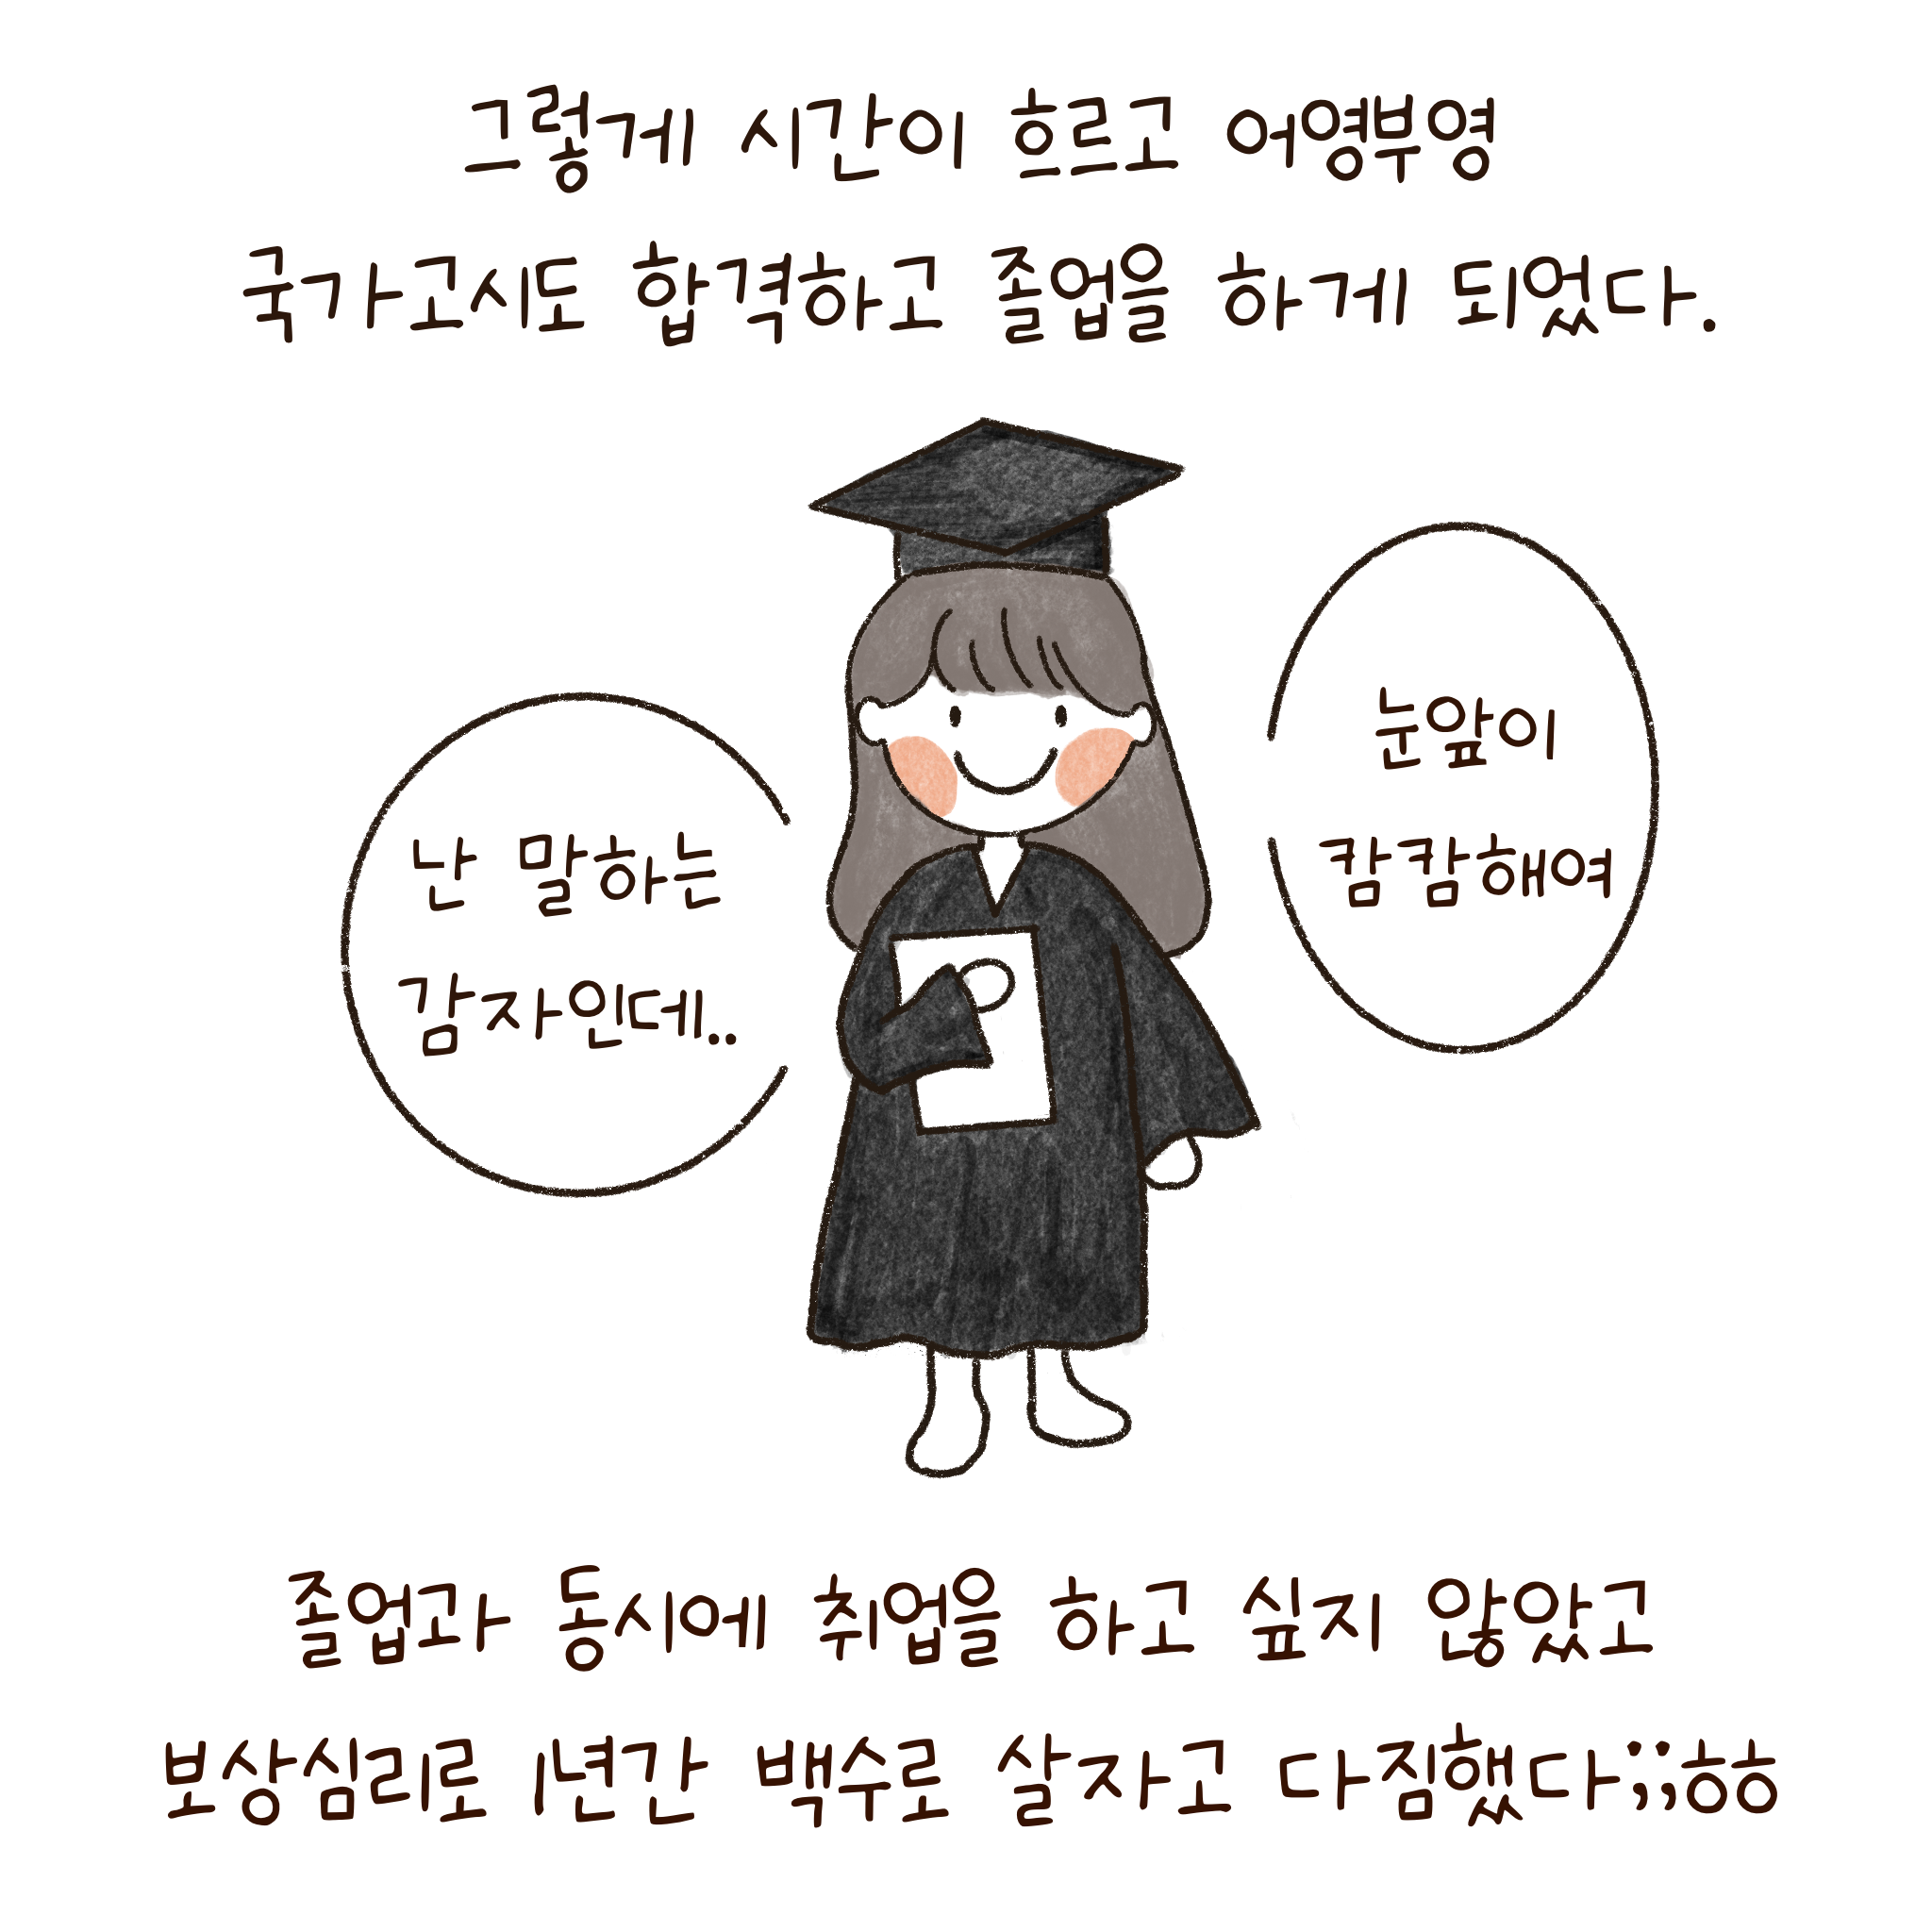 그렇게 시간이 흐르고 어영부영
국가고시도 합격하고 졸업을 하게 되었다.
눈앞이
캄캄해여
난 말하는
감자인데..
졸업과 동시에 취업을 하고 싶지 않았고
보상심리로 1년간 백수로 살자고 다짐했다;;ㅎㅎ